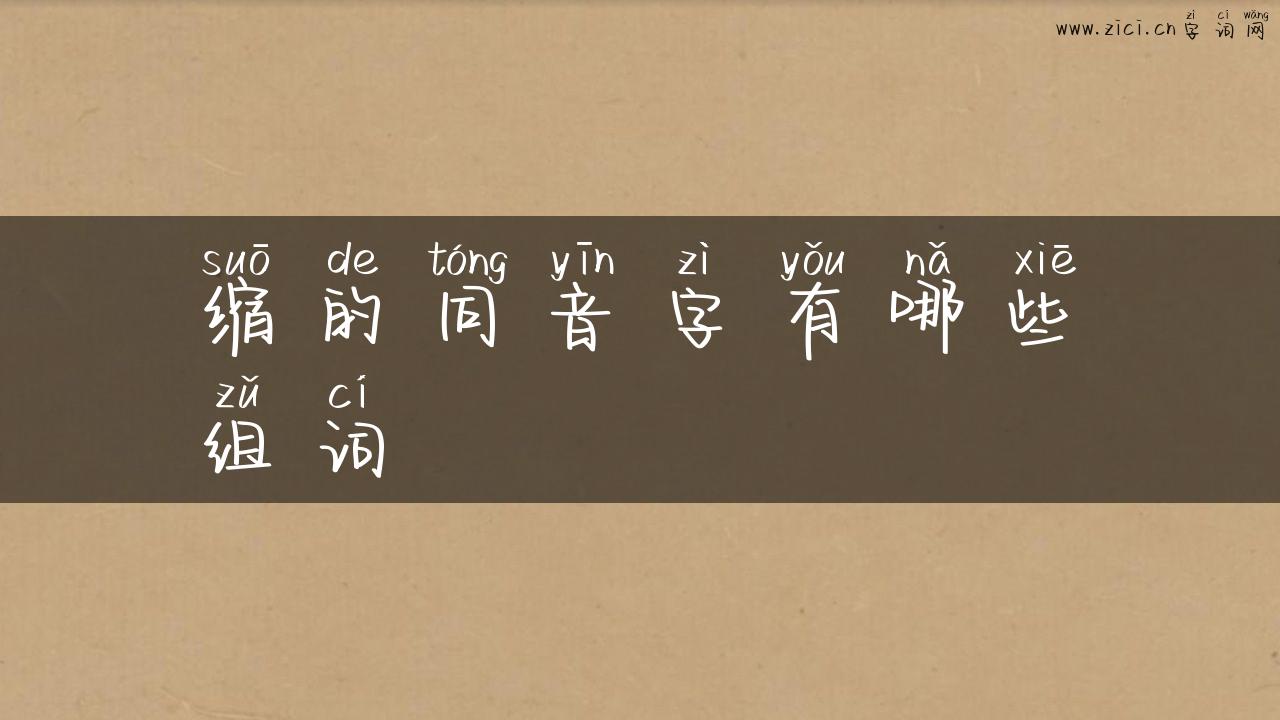 zì cí wǎng
www.zici.cn 字 词 网
suō de tóng yīn zì yǒu nǎ xiē
缩 的 同 音 字 有 哪 些
zǔ cí
组 词